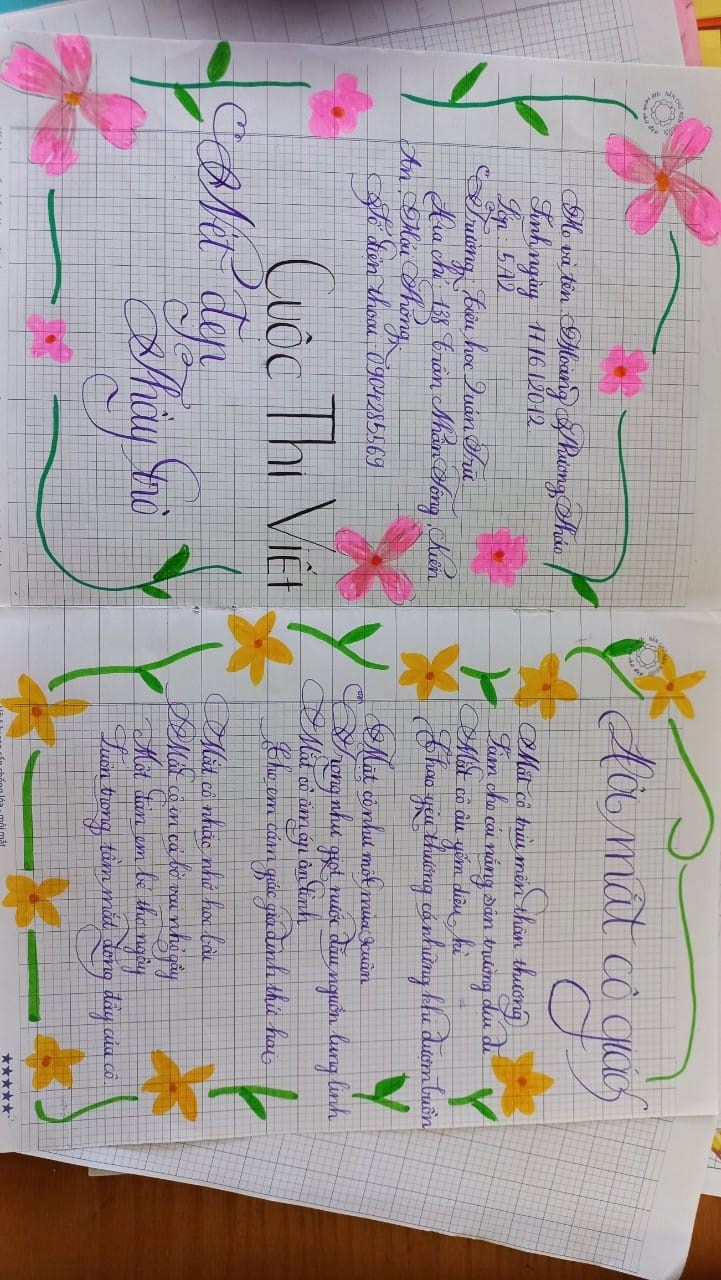 Họ và tên: Hoàng Phương Thảo
Sinh ngày 17/6/2012
Lớp: 5A2
Trường tiểu học Quán Trữ
Địa chỉ: 138 Trần Nhân Tông, Kiến
An, Hải Phòng
Số điện thoại: 0904285569
CUỘC THI VIẾT
Nét đẹp
Thầy trò
Đôi mắt cô giáo
Mắt cô trìu mến thân thương
Làm cho cái nóng sân trường dịu đi
Mắt cô âu yếm diệu kì
Thao yêu thương cả những khi đượm buồn
Mắt cô như một mùa xuân
Trong như giọt nước đầu nguồn lung linh
Mắt cô ấm áp ân tình
Cho em cảm giác gia đình thứ hai
Mắt cô nhắc nhở học bài
Mắt cô in cả bờ vai nhỏ gầy
Một đàn em bé thơ ngây
Luôn trong tầm mắt đong đầy của cô